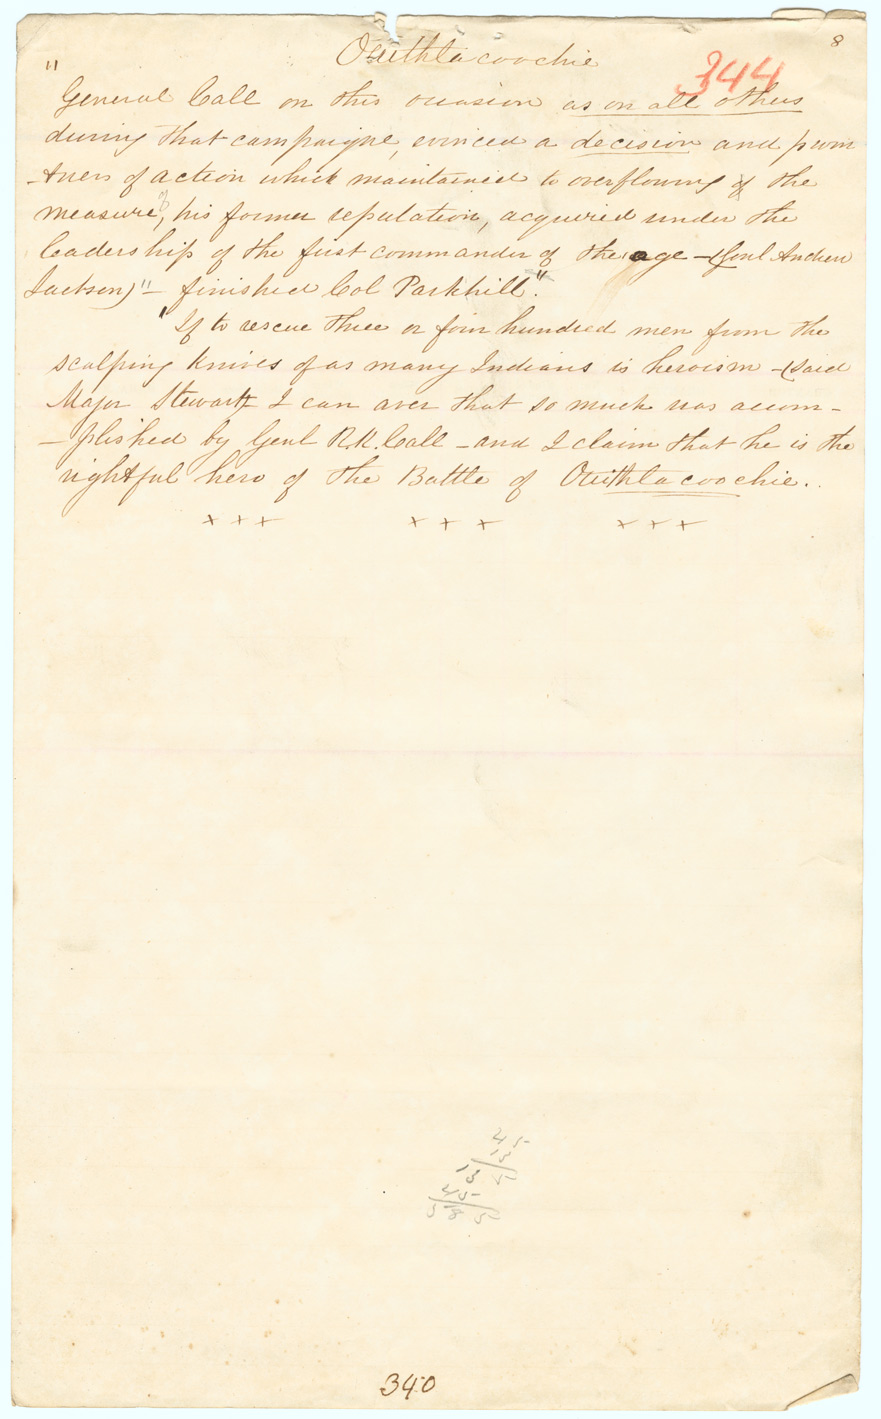 Ouithlacoochie
8
344
"
General Call on this occasion as on all others
during that campaigne, evinced a decision and prom
-tness of action which maintained to overflowing of the
measure, of his former reputation, acquired under the
leadership of the first commander of the age - (Genl Andrew
Jackson)" - finished Col Parkhill."
"If to rescue three or four hundred men from the
scalping knives of as many Indians is heroism - (said
Major Stewart I can aver that so much was accom-
-plished by Genl R.K. Call - and I claim that he is the
rightful hero of the Battle of Ouithlacoochie..
+ + + + + + + + +
340